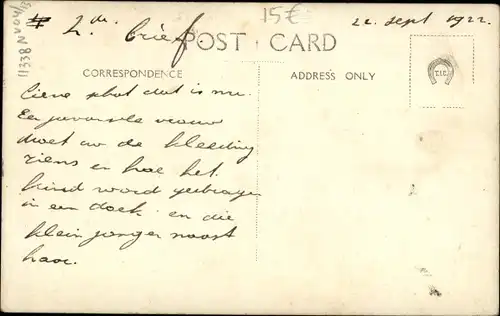 2de brief
15€
22 Sept 1922.
11338 NVO4/13
POST CARD
CORRESPONDENCE
ADDRESS ONLY
T.I.C.
lieve schat dat is nu
Een javaansche vrouw
moet uw de kleeding
ziens en hoe het
kind word gedragen
in een doek en die
klein jonger naast
haar.